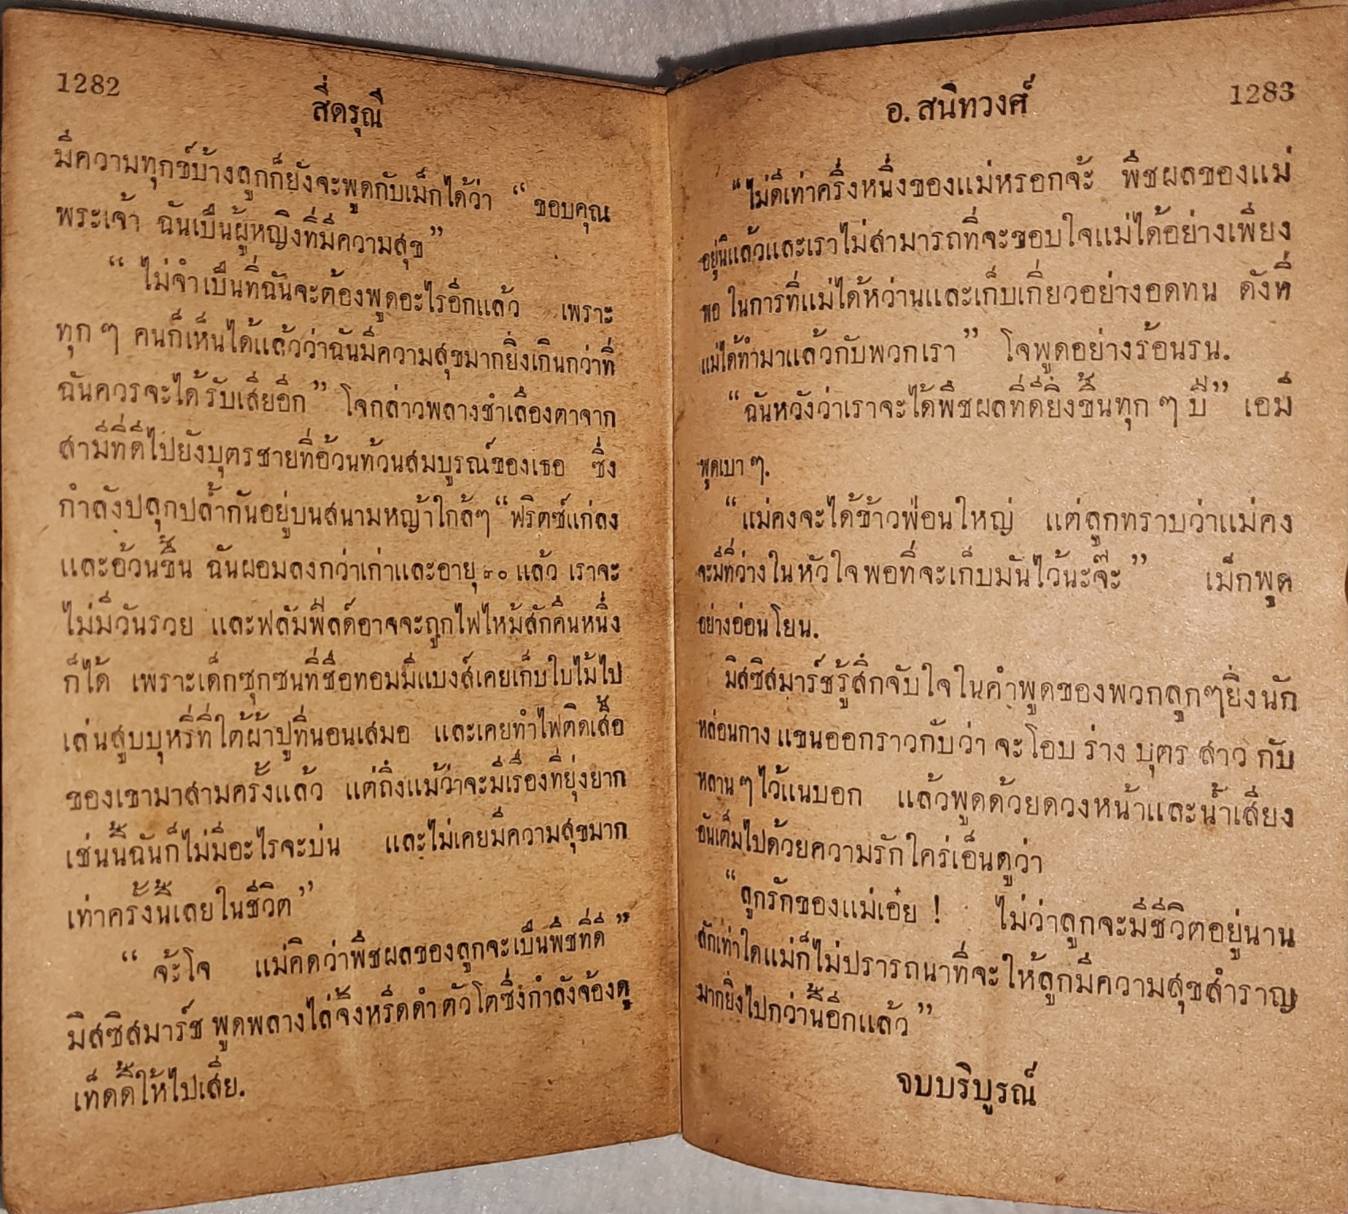 1282
สี่ดรุณี
มีความทุกข์บ้างลูกก็ยังจะพูดกับเม็กได้ว่า “ ขอบคุณ
พระเจ้า ฉันเป็นผู้หญิงที่มีความสุข”
“ ไม่จำเป็นที่ฉันจะต้องพูดอะไรอีกแล้ว เพราะ
ทุก ๆ คนก็เห็นได้แล้วว่าฉันมีความสุขมากยิ่งเกินกว่าที่
ฉันควรจะได้รับเสียอีก” โจกล่าวพลางชำเลืองตาจาก
สามีที่ดีไปยังบุตรชายที่อ้วนท้วนสมบูรณ์ของเธอ ซึ่ง
กำลังปลุกปล้ำกันอยู่บนสนามหญ้าใกล้ๆ “ฟริตซ์แก่ลง
และอ้วนขึ้น ฉันผอมลงกว่าเก่าและอายุ ๓๐ แล้ว เราจะ
ไม่มีวันรวย และฟลัมฟีลด์อาจจะถูกไฟไหม้สักคืนหนึ่ง
ก็ได้ เพราะเด็กซุกซนที่ชื่อทอมมี่แบงส์เคยเก็บใบไม้ไป
เล่นสูบบุหรี่ที่ใต้ผ้าปูที่นอนเสมอ และเคยทำไฟติดเสื้อ
ของเขามาสามครั้งแล้ว แต่ถึงแม้ว่าจะมีเรื่องที่ยุ่งยาก
เช่นนี้ฉันก็ไม่มีอะไรจะบ่น และไม่เคยมีความสุขมาก
เท่าครั้งนี้เลยในชีวิต”
“ จ้ะโจ แม่คิดว่าพืชผลของลูกจะเป็นพืชที่ดี ”
มิสซิสมาร์ช พูดพลางไล่จิ้งหรีดดำตัวโตซึ่งกำลังจ้องดู
เท็ดดี้ให้ไปเสีย.
อ. สนิทวงศ์
1283
“ไม่ดีเท่าครึ่งหนึ่งของแม่หรอกจ้ะ พืชผลของแม่
อยู่นี่แล้วและเราไม่สามารถที่จะขอบใจแม่ได้อย่างเพียง
พอ ในการที่แม่ได้หว่านและเก็บเกี่ยวอย่างอดทน ดังที่
แม่ได้ทำมาแล้วกับพวกเรา” โจพูดอย่างร้อนรน.
“ฉันหวังว่าเราจะได้พืชผลที่ดียิ่งขึ้นทุก ๆ ปี” เอมี่
พูดเบา ๆ.
“แม่คงจะได้ข้าวฟ่อนใหญ่ แต่ลูกทราบว่าแม่คง
จะมีที่ว่างในหัวใจพอที่จะเก็บมันไว้นะจ๊ะ” เม็กพูด
อย่างอ่อนโยน.
มิสซิสมาร์ชรู้สึกจับใจในคำพูดของพวกลูกๆยิ่งนัก
หล่อนกางแขนออกราวกับว่า จะโอบ ร่าง บุตร สาว กับ
หลาน ๆ ไว้แนบอก แล้วพูดด้วยดวงหน้าและน้ำเสียง
อันเต็มไปด้วยความรักใคร่เอ็นดูว่า
“ลูกรักของแม่เอ๋ย ! ไม่ว่าลูกจะมีชีวิตอยู่นาน
สักเท่าใดแม่ก็ไม่ปรารถนาที่จะให้ลูกมีความสุขสำราญ
มากยิ่งไปกว่านี้อีกแล้ว”
จบบริบูรณ์